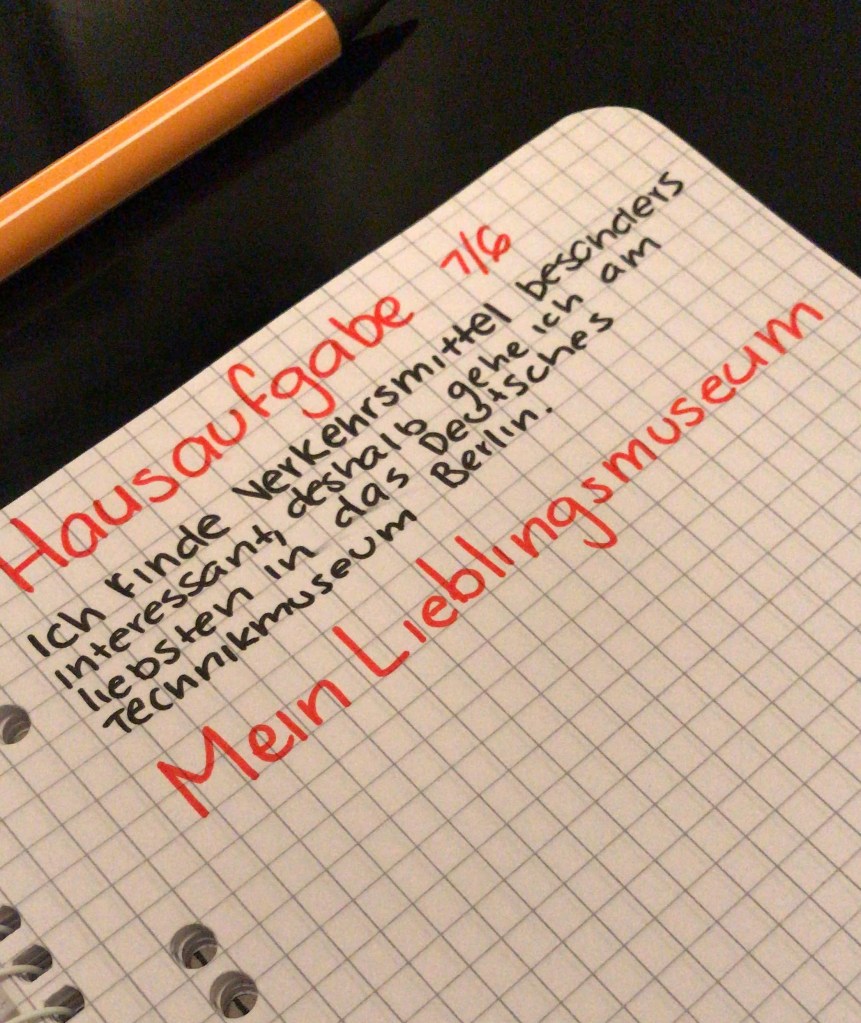 Hausaufgabe 7/6
Ich finde Verkehrsmittel besonders
interessant, deshalb gehe ich am
liebsten in das Deutsches
Technikmuseum Berlin.
Mein Lieblingsmuseum